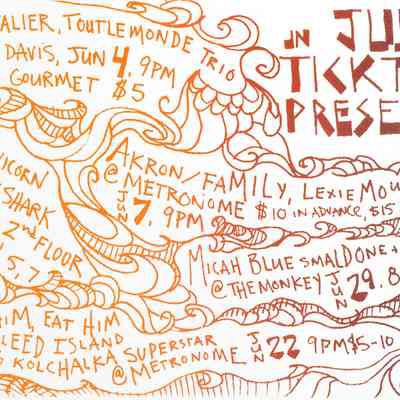 ALIER, TOUTLEMONDE TRIO
DAVIS, JUN 4, 9PM
GOURMET $5
IN JU
TICKT
PRESE
AKRON/FAMILY, LEXIE MOU
@ METRONOME $10 IN ADVANCE, $15
JUN 7, 9PM
NICORN
SHARK
2ND FLOOR
, 5, 7
MICAH BLUE SMALDONE +
@ THE MONKEY JUN 29, 8
HIM, EAT HIM
LEED ISLAND
KOLCHALKA SUPERSTAR
@ METRONOME JUN 22 9PM $5-10